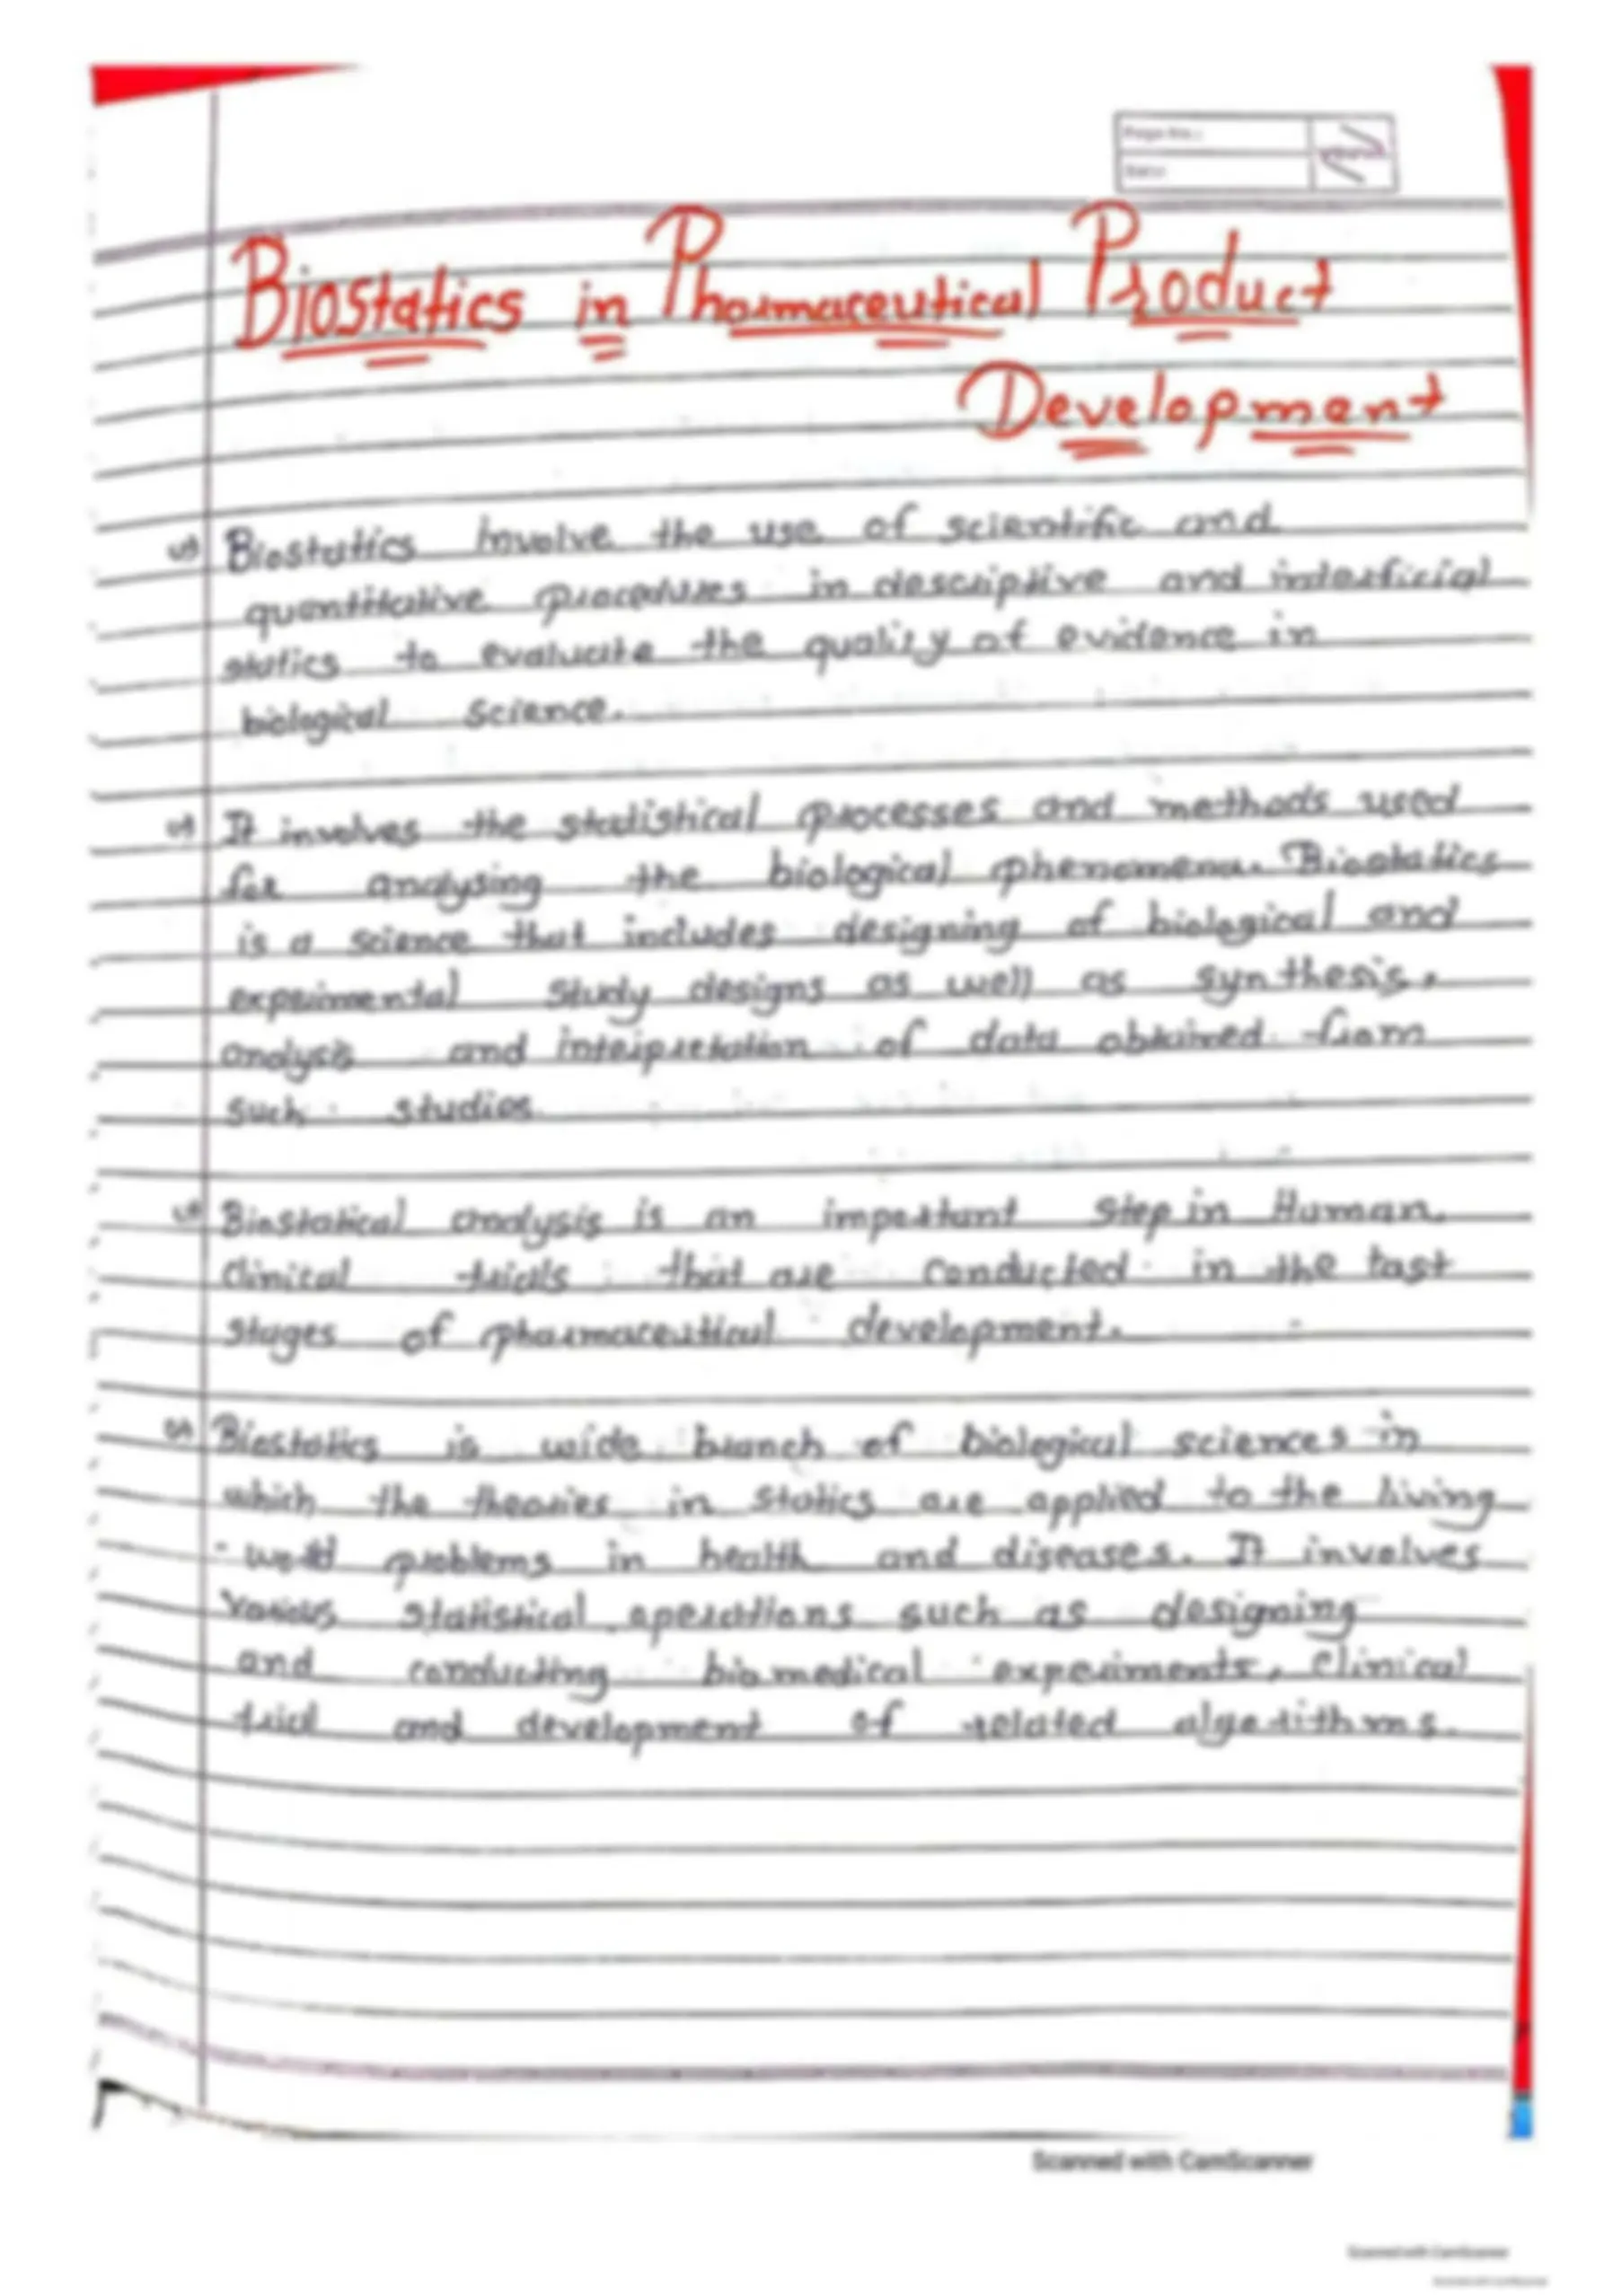 Page No.:
Date:
Biostatics in Pharmaceutical Product
Development
Biostatics involve the use of scientific and
quantitative procedures in descriptive and
statics to evaluate the quality of evidence in
biological science.
It involves the statistical processes and methods used
for analysing the biological phenomena. Biostatics
is a science that includes designing of biological and
experimental study designs as well as synthesis,
analysis and interpretation of data obtained from
such studies
Biostatical analysis is an important step in Human
Clinical trials that are conducted in the last
stages of pharmaceutical development.
Biostatics is wide branch of biological sciences in
which the theories in statics are applied to the living
world problems in health and diseases. It involves
various statistical operations such as designing
and conducting biomedical experiments, clinical
trial and development of related algorithms.
Scanned with CamScanner
Scanned with CamScanner
Scanned with CamScanner